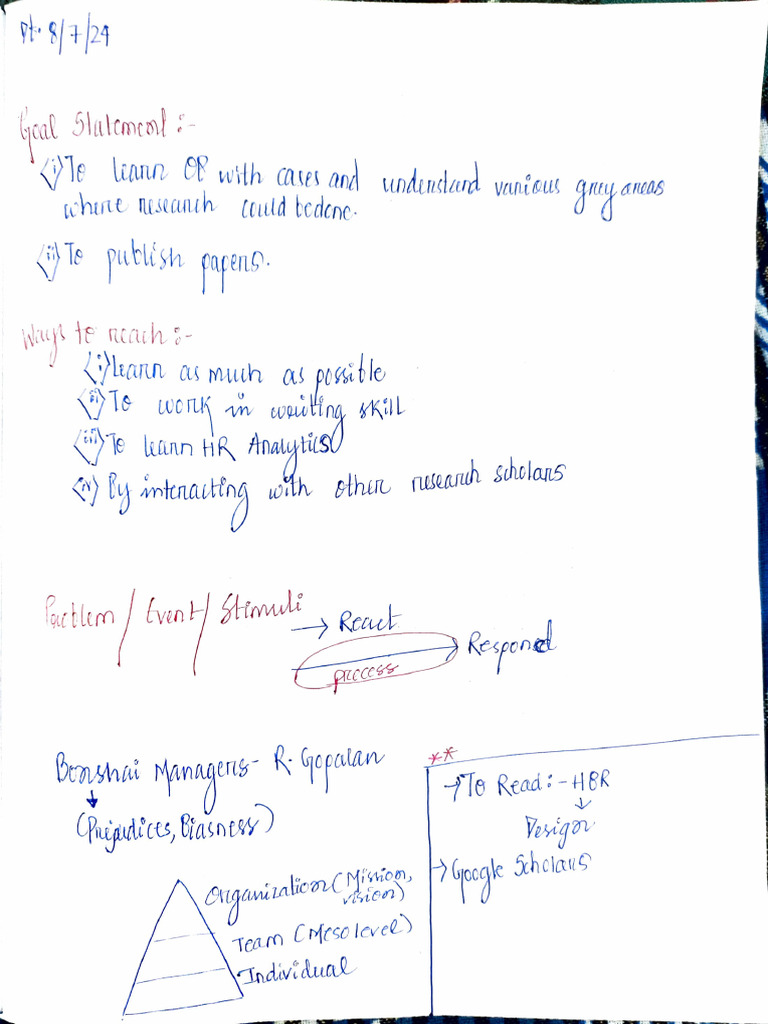 Dt. 8/7/24
Goal Statement :-
<i> To learn OB with cases and understand various grey areas
where research could be done.
<ii> To publish papers.
Ways to reach :-
<i> Learn as much as possible
<ii> To work in writing skill
<iii> To learn HR Analytics
<iv> By interacting with other research scholars
Problem / Event / Stimuli
→ React
→ Respond
process
Bonshai Managers - R. Gopalan
↓
(Prejudices, Biasness)
Organization (Mission,
vision)
Team (Meso level)
Individual
**
→ To Read :- HBR
↓
Design
→ Google Scholars